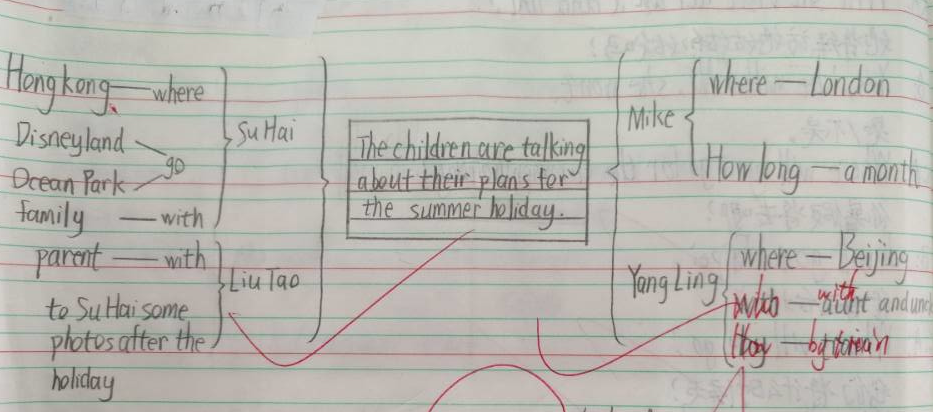 Hong kong — where
Disneyland
Ocean Park
go
family — with
Su Hai
parent — with
to Su Hai some
photos after the
holiday
Liu Tao
The children are talking
about their plans for
the summer holiday.
Mike
where — London
How long — a month
Yang Ling
where — Beijing
with — aunt and
How — by